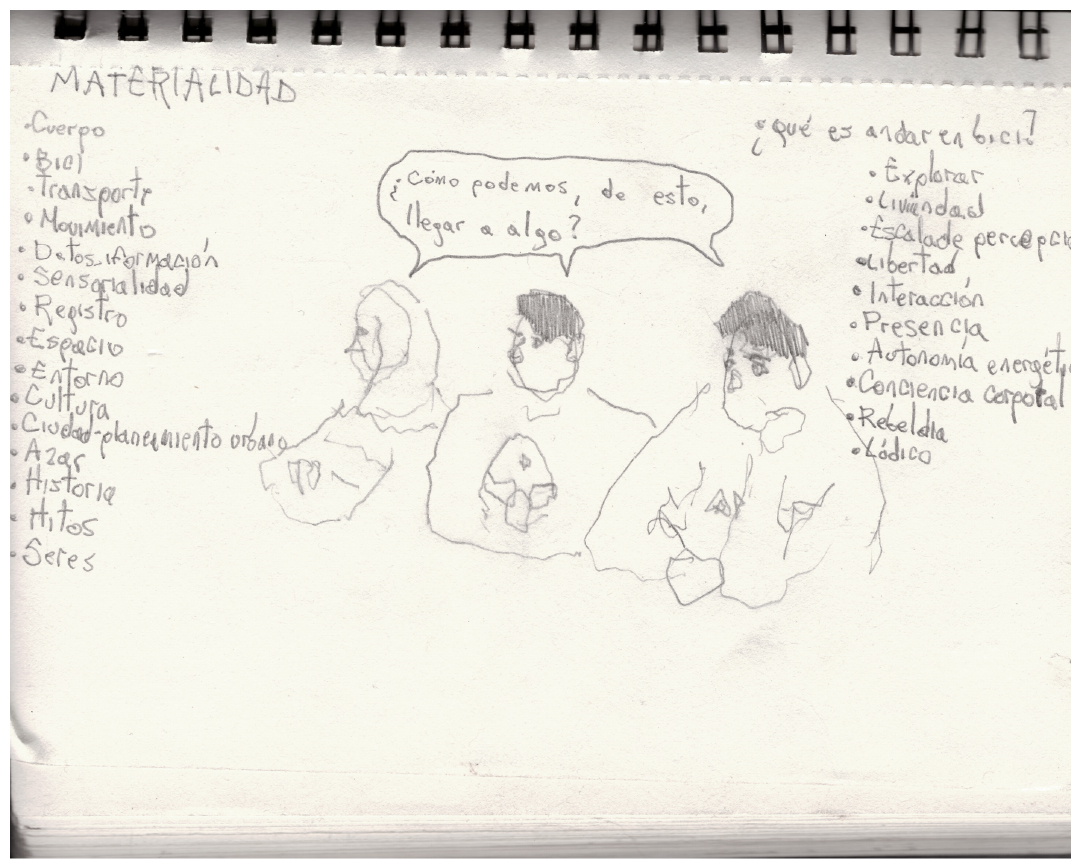 MATERIALIDAD
•Cuerpo
•Bici
•Transporte
•Movimiento
•Datos-iformación
•Sensorialidad
•Registro
•Espacio
•Entorno
•Cultura
•Ciudad-planeamiento urbano
•Azar
•Historia
•Hitos
•Seres
¿Cómo podemos, de esto,
llegar a algo?
¿Qué es andar en bici?
•Explorar
•Escala de percepció
•Libertad
•Interacción
•Presencia
•Autonomía energéti
•Conciencia corporal
•Rebeldía
•Lúdico